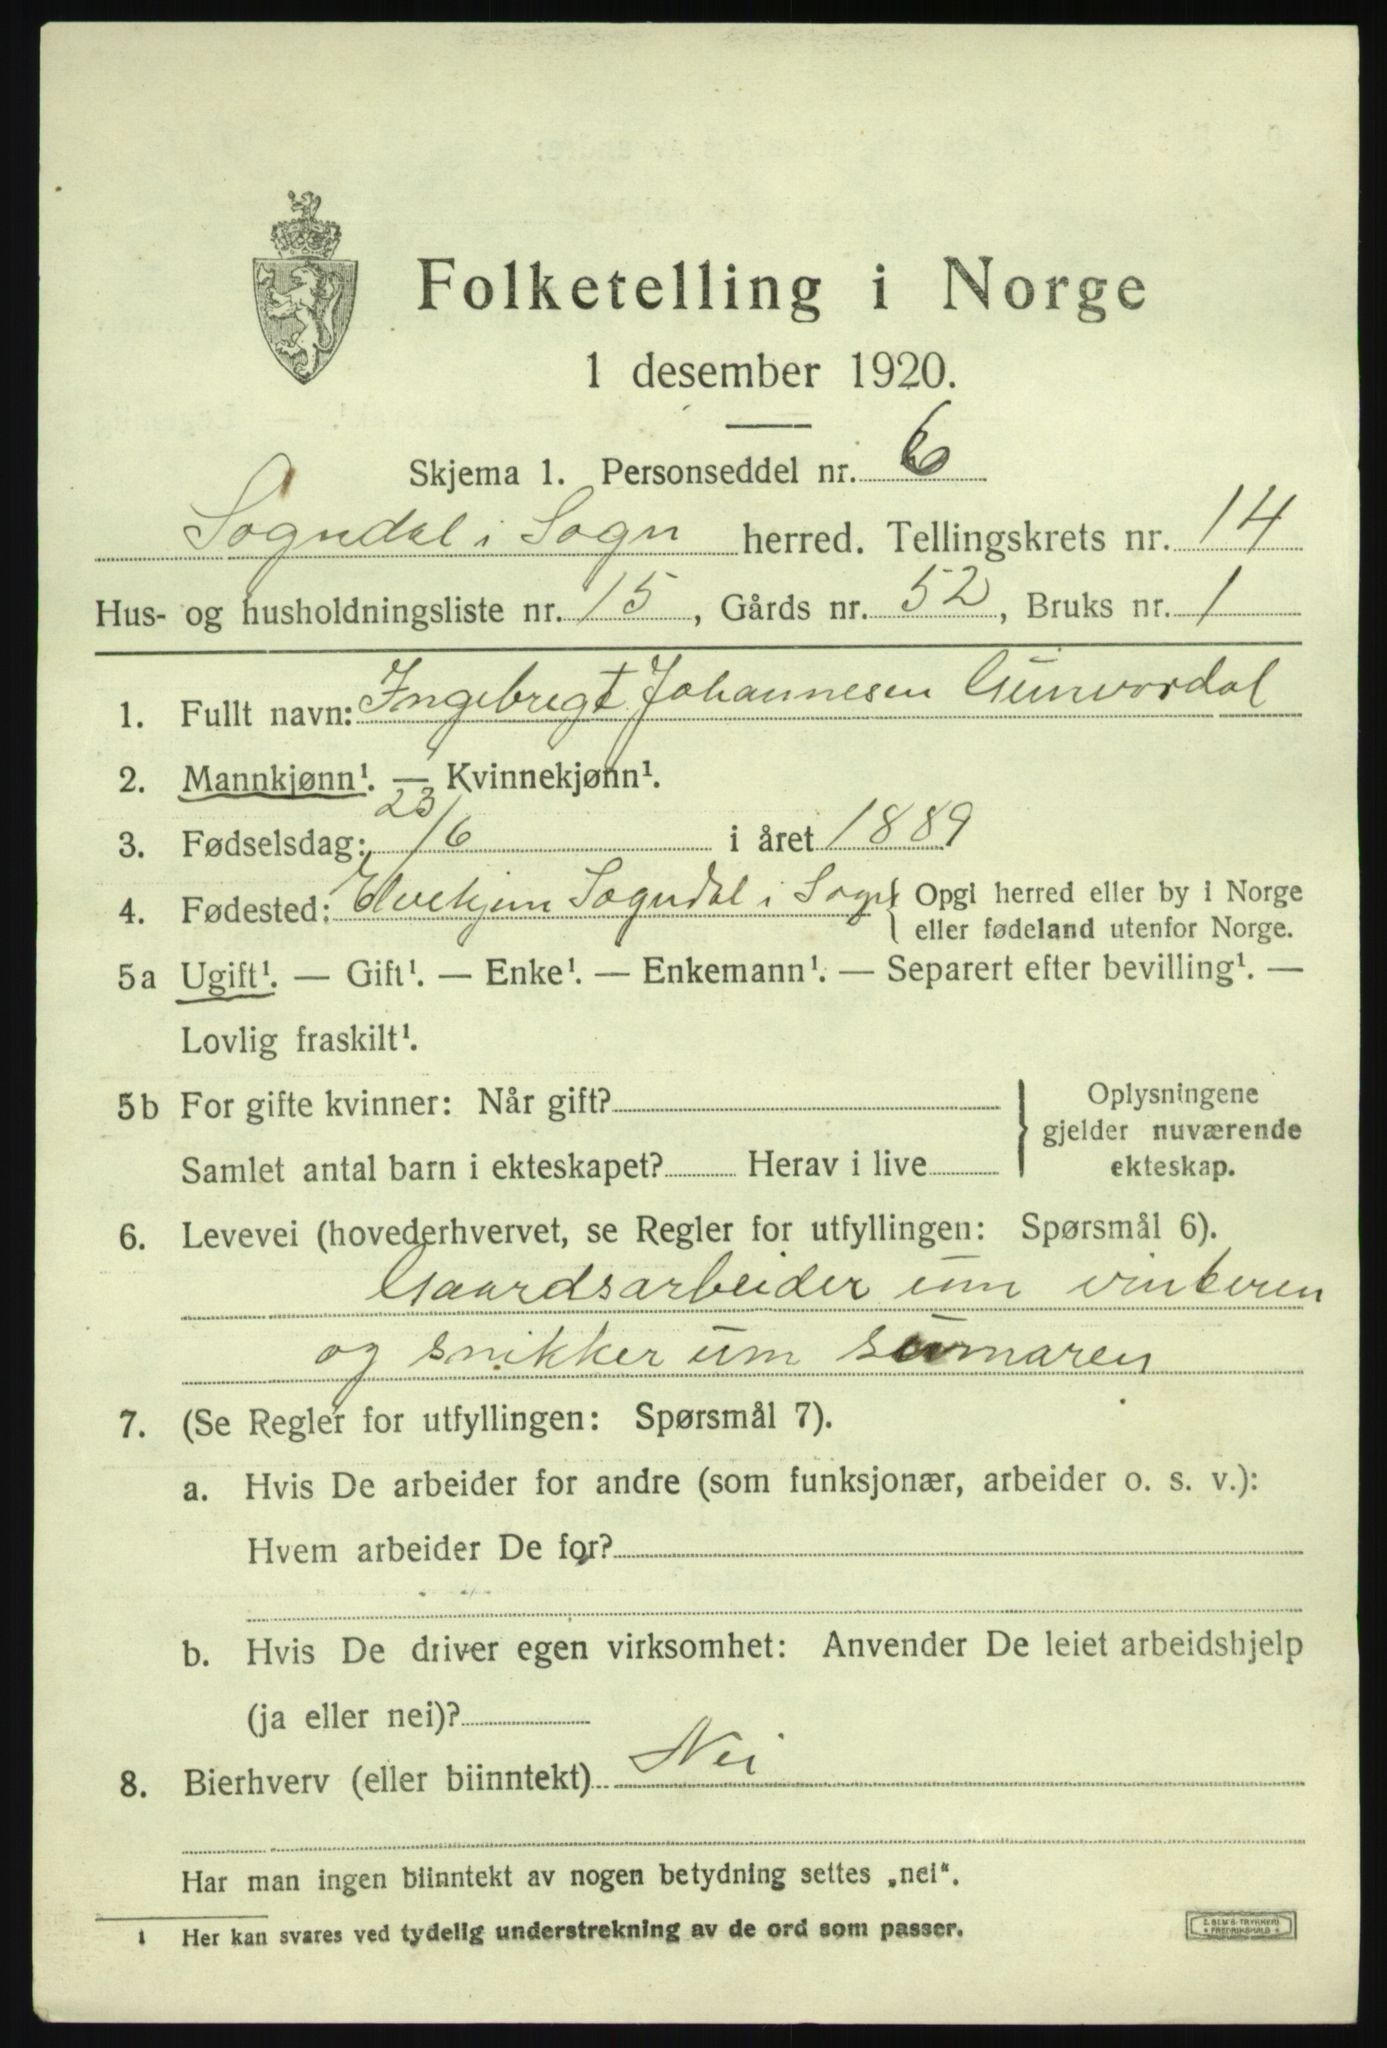 Folketelling i Norge
1 desember 1920.
Skjema 1. Personseddel nr. 6
Sogndal i Sogn herred. Tellingskrets nr. 14
Hus- og husholdningsliste nr. 15, Gårds nr. 52, Bruks nr. 1
1. Fullt navn: Ingebrigt Johannesen Gunvordal
2. Mannkjønn¹. — Kvinnekjønn¹.
3. Fødselsdag: 23/6 i året 1889
4. Fødested: Elvekjem Sogndal i Sogn { Opgi herred eller by i Norge
eller fødeland utenfor Norge.
5a Ugift¹. — Gift¹. — Enke¹. — Enkemann¹. — Separert efter bevilling¹. —
Lovlig fraskilt¹.
5b For gifte kvinner: Når gift?
Samlet antal barn i ekteskapet? Herav i live
} Oplysningene
gjelder nuværende
ekteskap.
6. Levevei (hovederhvervet, se Regler for utfyllingen: Spørsmål 6).
Gaardsarbeider um vinteren
og snikker um sumaren
7. (Se Regler for utfyllingen: Spørsmål 7).
a. Hvis De arbeider for andre (som funksjonær, arbeider o. s. v.):
Hvem arbeider De for?
b. Hvis De driver egen virksomhet: Anvender De leiet arbeidshjelp
(ja eller nei)?
8. Bierhverv (eller biinntekt) Nei
Har man ingen biinntekt av nogen betydning settes „nei“.
1 Her kan svares ved tydelig understrekning av de ord som passer.